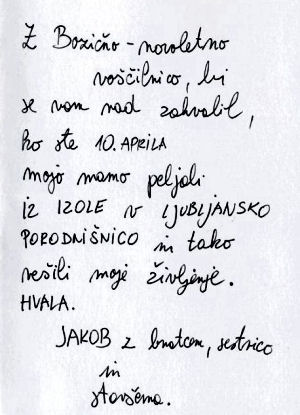 Z Božično-novoletno
voščilnico, bi
se vam rad zahvalil,
ko ste 10. APRILA
mojo mamo peljali
IZ IZOLE v LJUBLJANSKO
PORODNIŠNICO in tako
rešili moje življenje.
HVALA.
JAKOB z bratcem, sestrico
in
staršema.